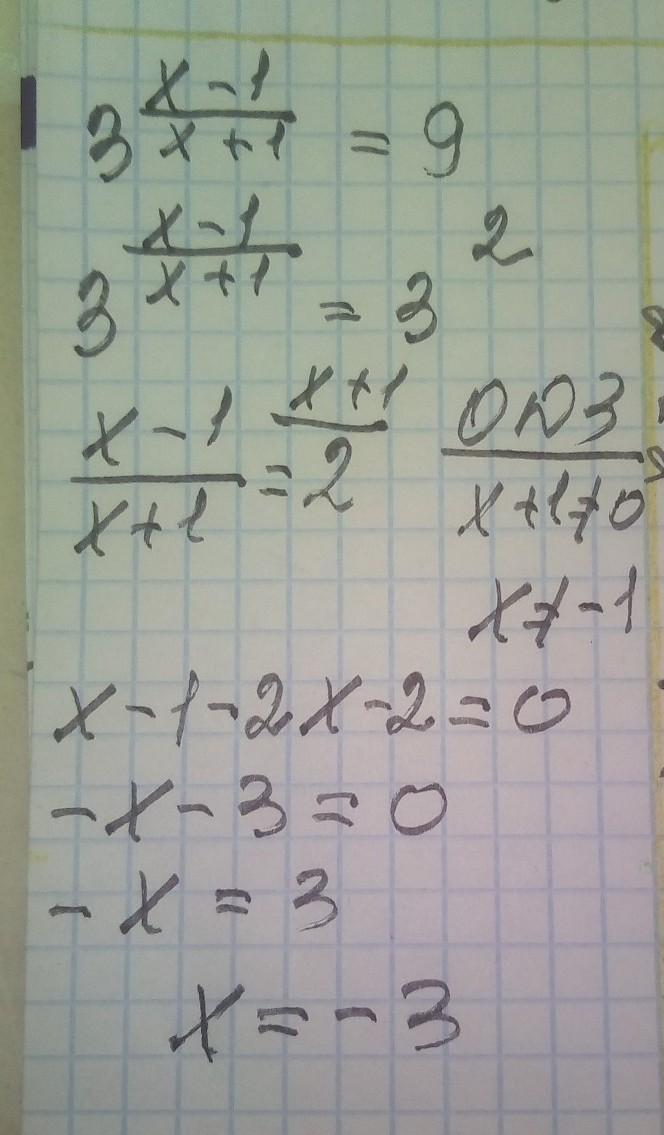 3^{\frac{x-1}{x+1}} = 9
3^{\frac{x-1}{x+1}} = 3^2
\frac{x-1}{x+1} = \overset{x+1}{\overline{2}}
ОДЗ
x+1≠0
x≠-1
x-1-2x-2=0
-x-3=0
-x=3
x=-3